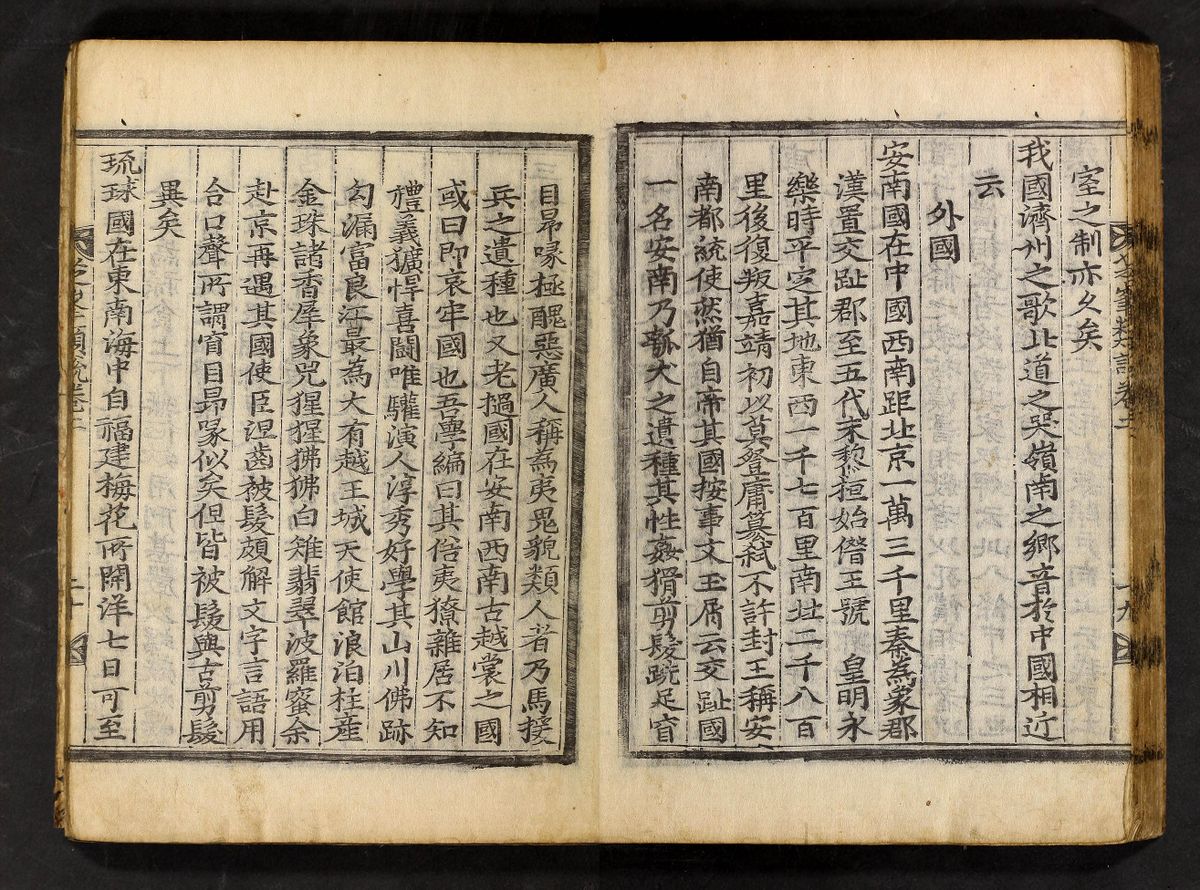 室之制亦久矣
我國濟州之歌北道之哭嶺南之鄉音於中國相近
云
外國
安南國在中國西南距北京一萬三千里秦為象郡
漢置交趾郡至五代末黎桓始僭王號 皇明永
樂時平定其地東西一千七百里南北二千八百
里後復叛嘉靖初以莫登庸簒弑不許封王稱安
南都統使然猶自帝其國按事文玉屑云交趾國
一名安南乃瓠犬之遺種其性姦猾剪髮跣足窅
目昂喙極醜惡廣人稱為夷鬼貌類人者乃馬援
兵之遺種也又老撾國在安南西南古越裳之國
或曰即哀牢國也吾學編曰其俗夷獠雜居不知
禮義獷悍喜鬪唯驩演人淳秀好學其山川佛跡
勾漏富良江最為大有越王城天使館浪泊柱産
金珠諸香犀象兕猩猩狒狒白雉翡翠波羅蜜余
赴京再遇其國使臣涅齒被髮頗解文字言語用
合口聲所謂窅目昂喙似矣但皆被髮與古剪髮
異矣
琉球國在東南海中自福建梅花所開洋七日可至
芝峯類說卷二
十九
芝峯類說卷二
二十